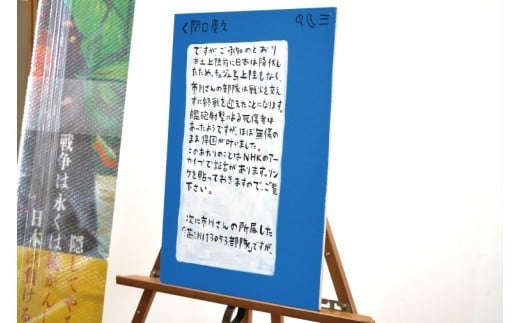 く関口慶久
ですがご承知のとおり
本土上陸前に日本は降伏し
たため、チェジュ島上陸もなく、
市川さんの部隊は戦火を交え
ずに終戦を迎えたことになります。
艦砲射撃による死傷者は
あったようですが、ほぼ無傷の
まま帰国が叶いました。
このあたりのことはNHKのアー
カイブで証言があります。リン
クを貼っておきますので、ご覧
下さい。
次に市川さんの所属した
部隊」ですが、
隠してや
戦争は永くは
日本は負ける